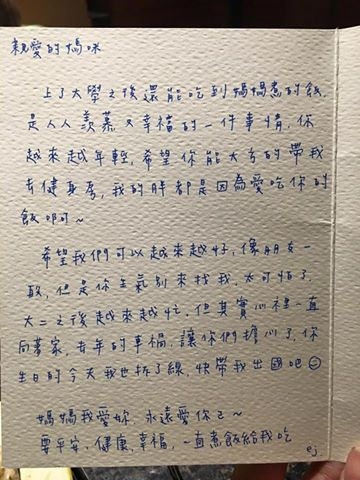 親愛的媽咪
上了大學之後還能吃到媽媽煮的飯,
是人人羨慕又幸福的一件事情,你
越來越年輕,希望你能大方的帶我
去健身房,我的胖都是因為愛吃你的
飯叩可~
希望我們可以越來越好,像朋友一
般,但是你生氣別來找我,太可怕了,
大二之後越來越忙,但其實心裡一直
向著家,去年的車禍,讓你們擔心了,你
生日的今天我也拆了線,快帶我出國吧
媽媽我愛妳,永遠愛你ㄛ~
要平安、健康、幸福,一直煮飯給我吃
ej